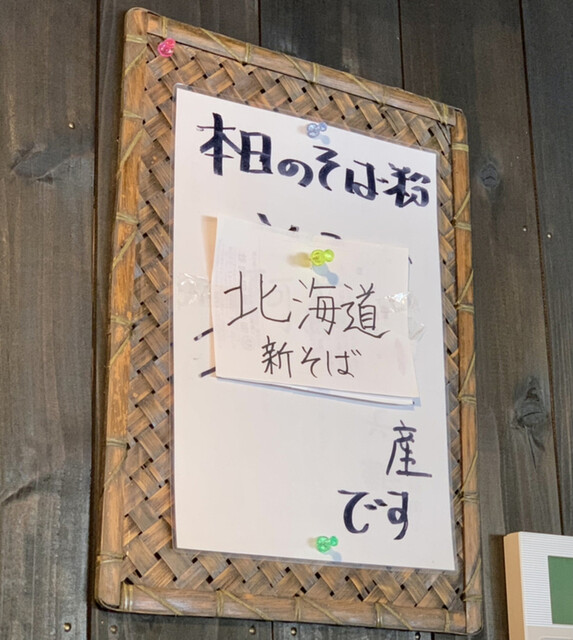 本日のそば粉
北海道
新そば
産
です